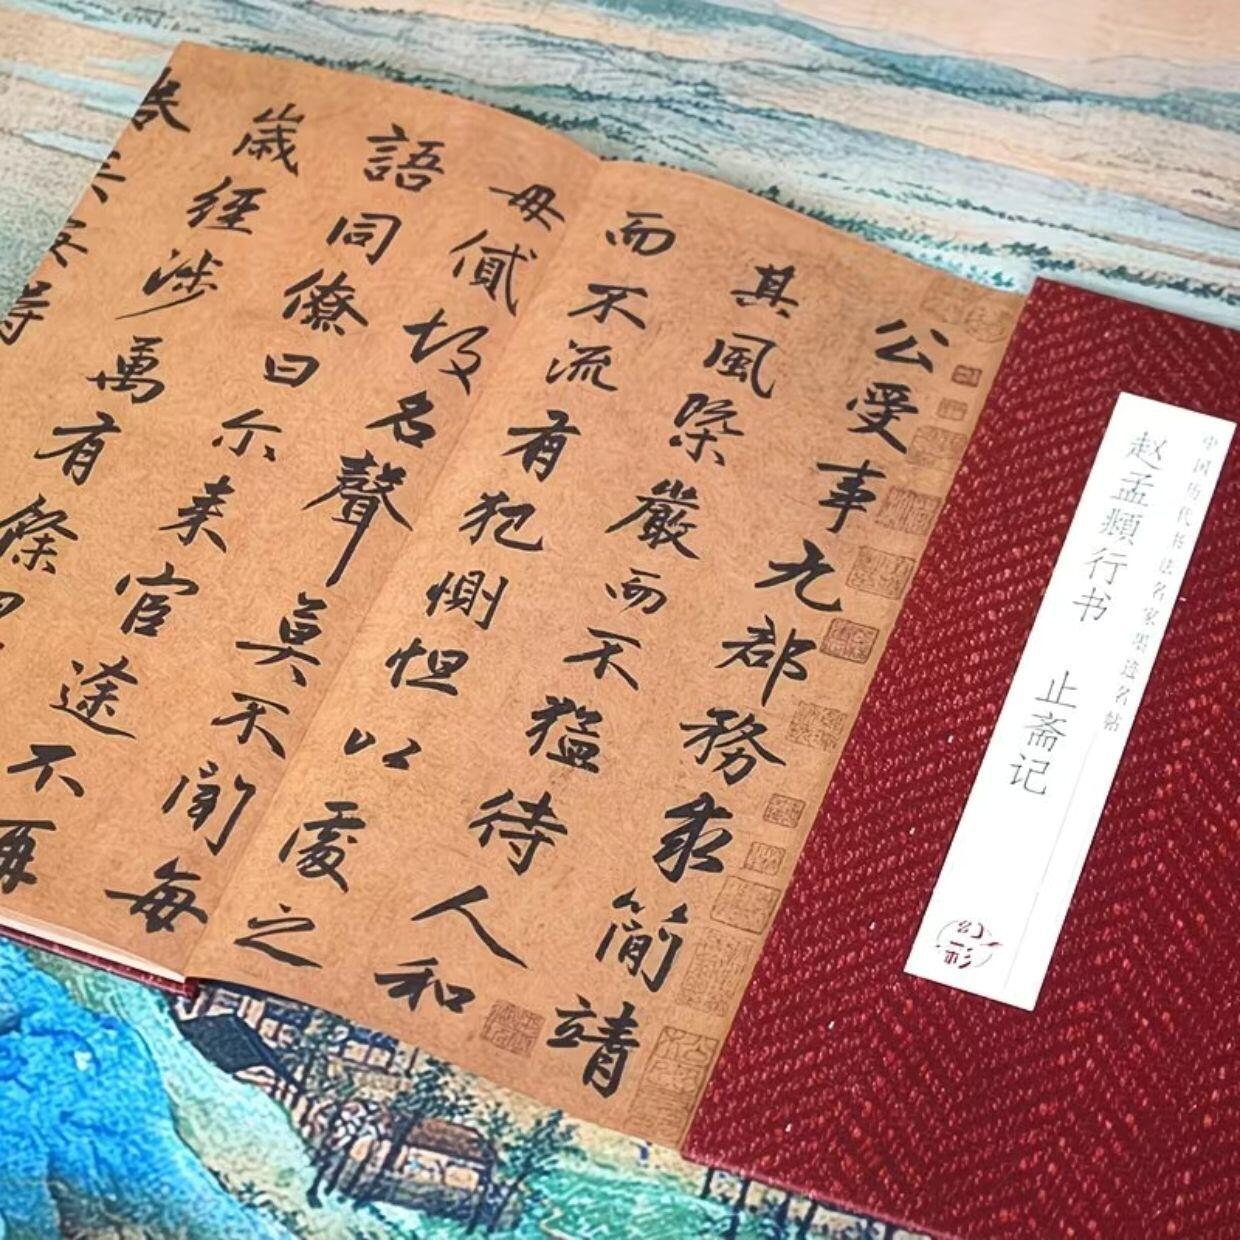 中国历代书法名家墨迹名帖
赵孟頫行书 止斋记
公受事九郡務求簡靖
其風際嚴而不猛待人和
而不流有犯惻怛以處之
毋貳故名聲莫不聞每
語同僚曰尔来官途不再
歲經涉萬有條